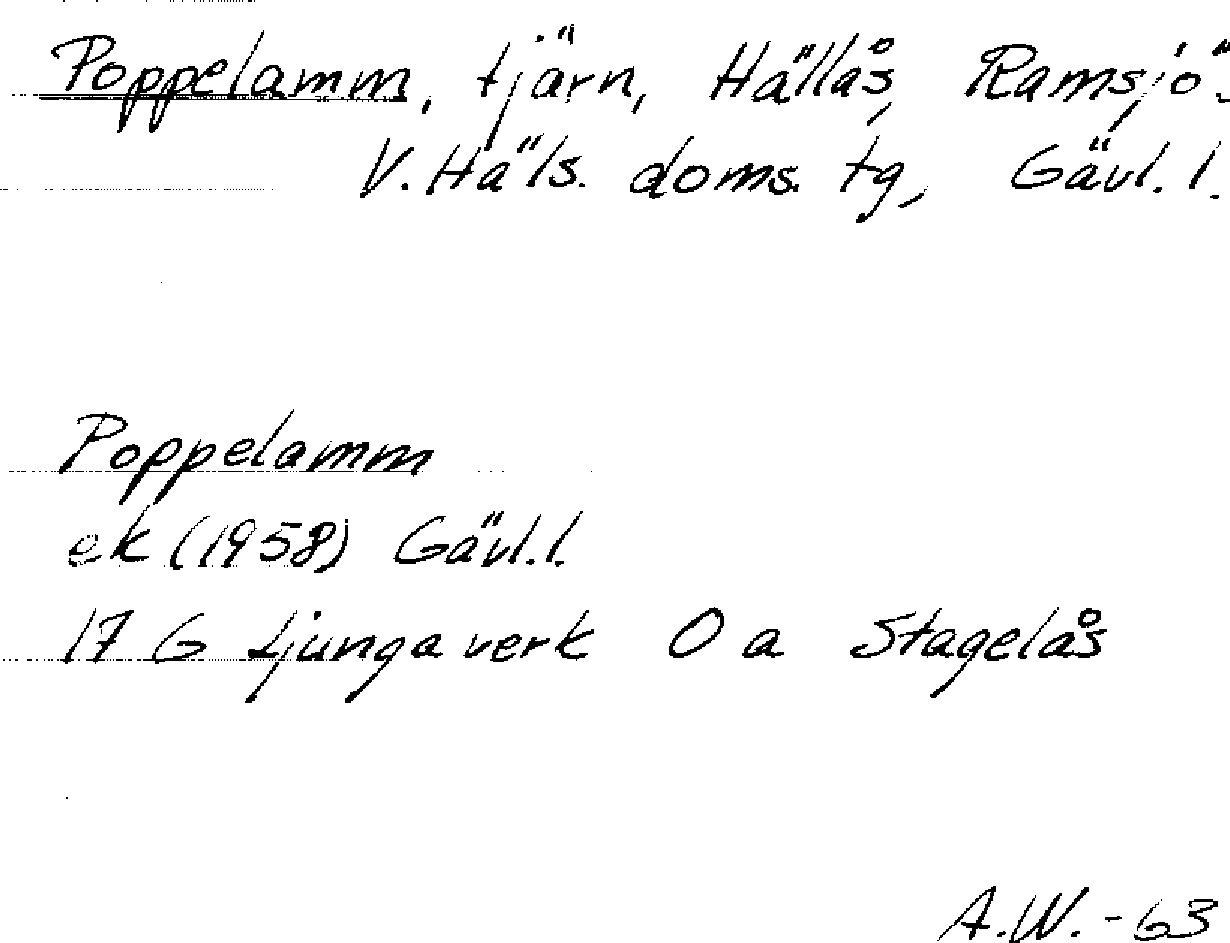 Poppelamm, tjärn, Hällås, Ramsjö s
V. Häls. doms. tg, Gävl. l.
Poppelamm
ek (1958) Gävl. l.
17 G Ljungaverk O a Stagelås
A.W. - 63